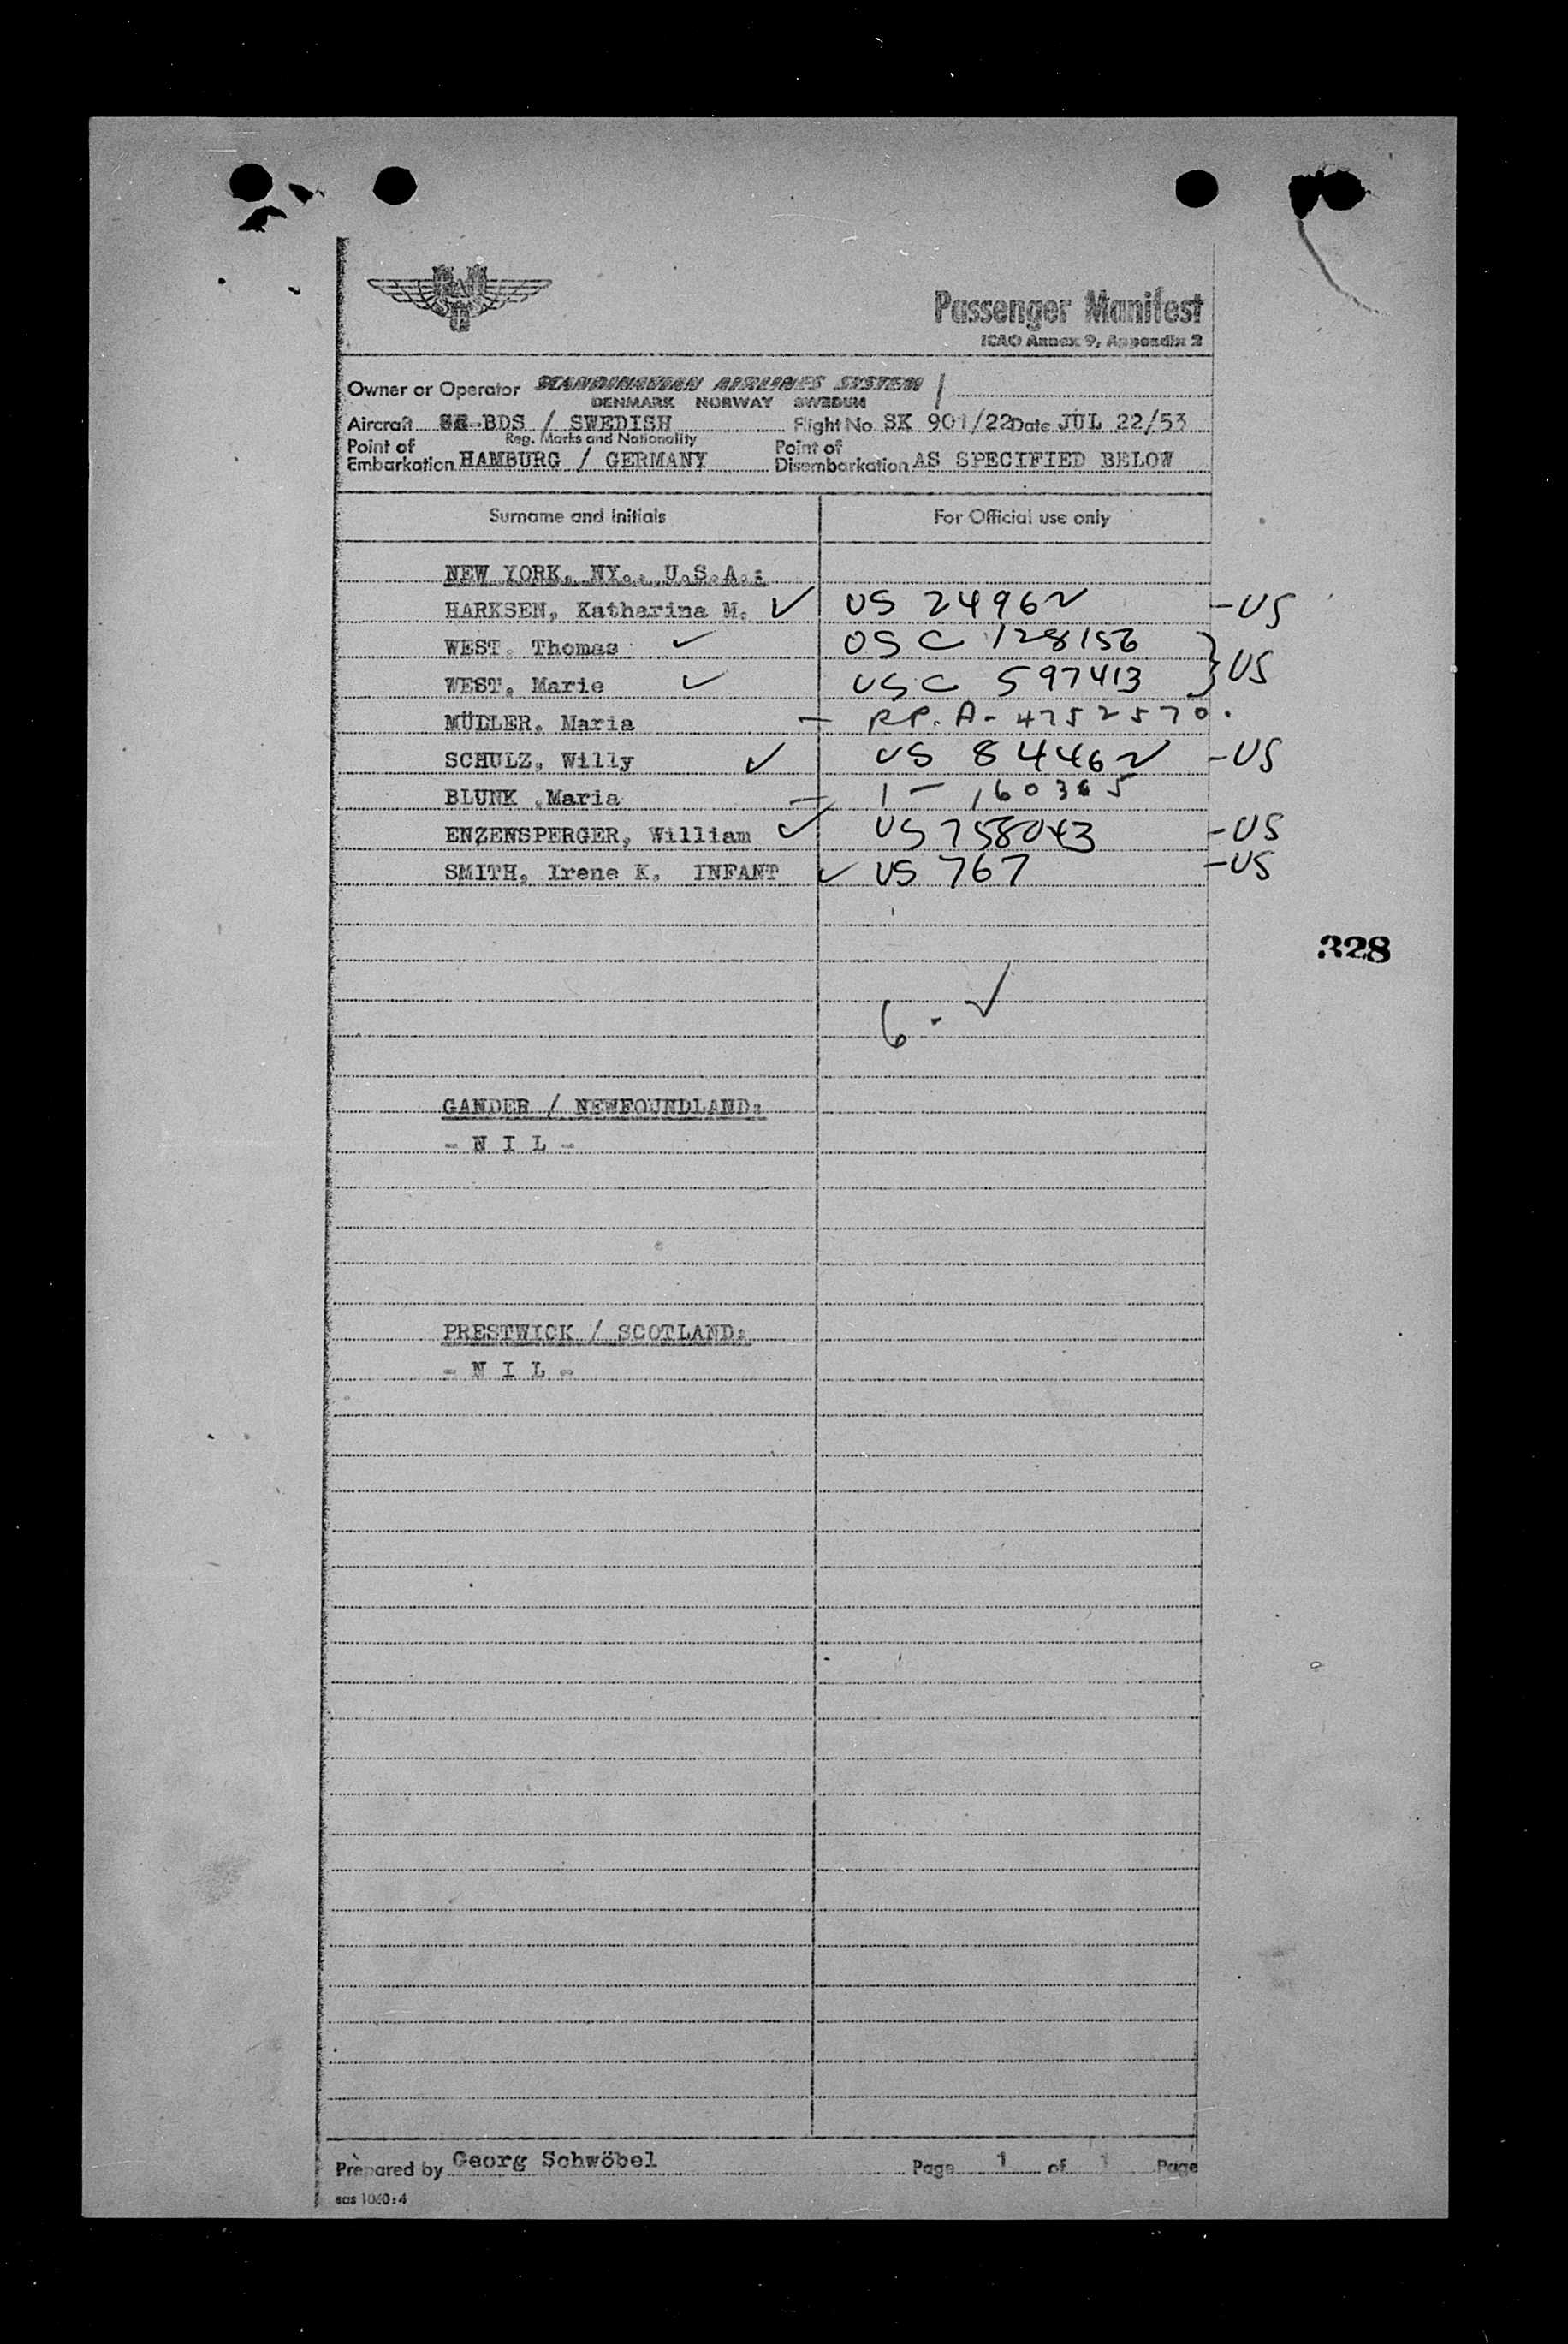 Passenger Manifest
ICAO Annex 9, Appendix 2
Owner or Operator SCANDINAVIAN AIRLINES SYSTEM /
DENMARK NORWAY SWEDEN
Aircraft SE-BDS / SWEDISH Flight No SK 901/22 Date JUL 22/53
Reg. Marks and Nationality
Point of Embarkation HAMBURG / GERMANY Point of Disembarkation AS SPECIFIED BELOW
Surname and Initials For Official use only
NEW YORK, NY., U.S.A.:
HARKSEN, Katharina M. ✓ US 24962 -US
WEST, Thomas ✓ USC 128156
WEST, Marie ✓ USC 597413 } US
MÜLLER, Maria — RP. A-4752570.
SCHULZ, Willy ✓ US 84462 -US
BLUNK ,Maria — 1-160365
ENZENSPERGER, William ✓ US 758043 -US
SMITH, Irene K. INFANT ✓ US 767 -US
328
6 - ✓
GANDER / NEWFOUNDLAND:
- N I L -
PRESTWICK / SCOTLAND:
- N I L -
Prepared by Georg Schwöbel Page 1 of 1 Page
sas 1060:4